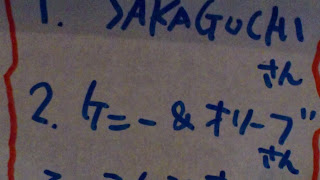 1. SAKAGUCHI
さん
2. ケニー & オリーブ
さん
3.